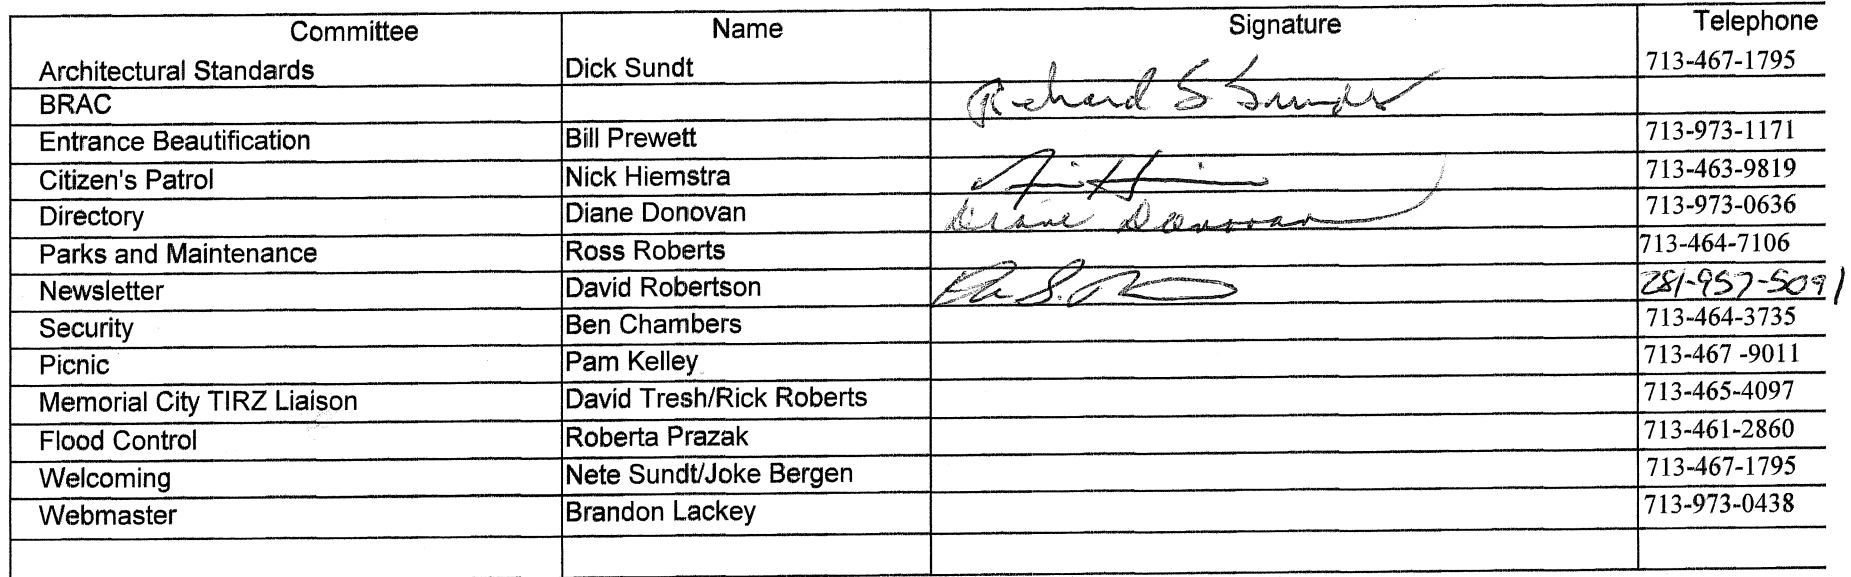 Committee Name Signature Telephone
Architectural Standards Dick Sundt Richard S Sundt 713-467-1795
BRAC
Entrance Beautification Bill Prewett 713-973-1171
Citizen's Patrol Nick Hiemstra 713-463-9819
Directory Diane Donovan Diane Donovan 713-973-0636
Parks and Maintenance Ross Roberts 713-464-7106
Newsletter David Robertson 281-957-5091
Security Ben Chambers 713-464-3735
Picnic Pam Kelley 713-467 -9011
Memorial City TIRZ Liaison David Tresh/Rick Roberts 713-465-4097
Flood Control Roberta Prazak 713-461-2860
Welcoming Nete Sundt/Joke Bergen 713-467-1795
Webmaster Brandon Lackey 713-973-0438